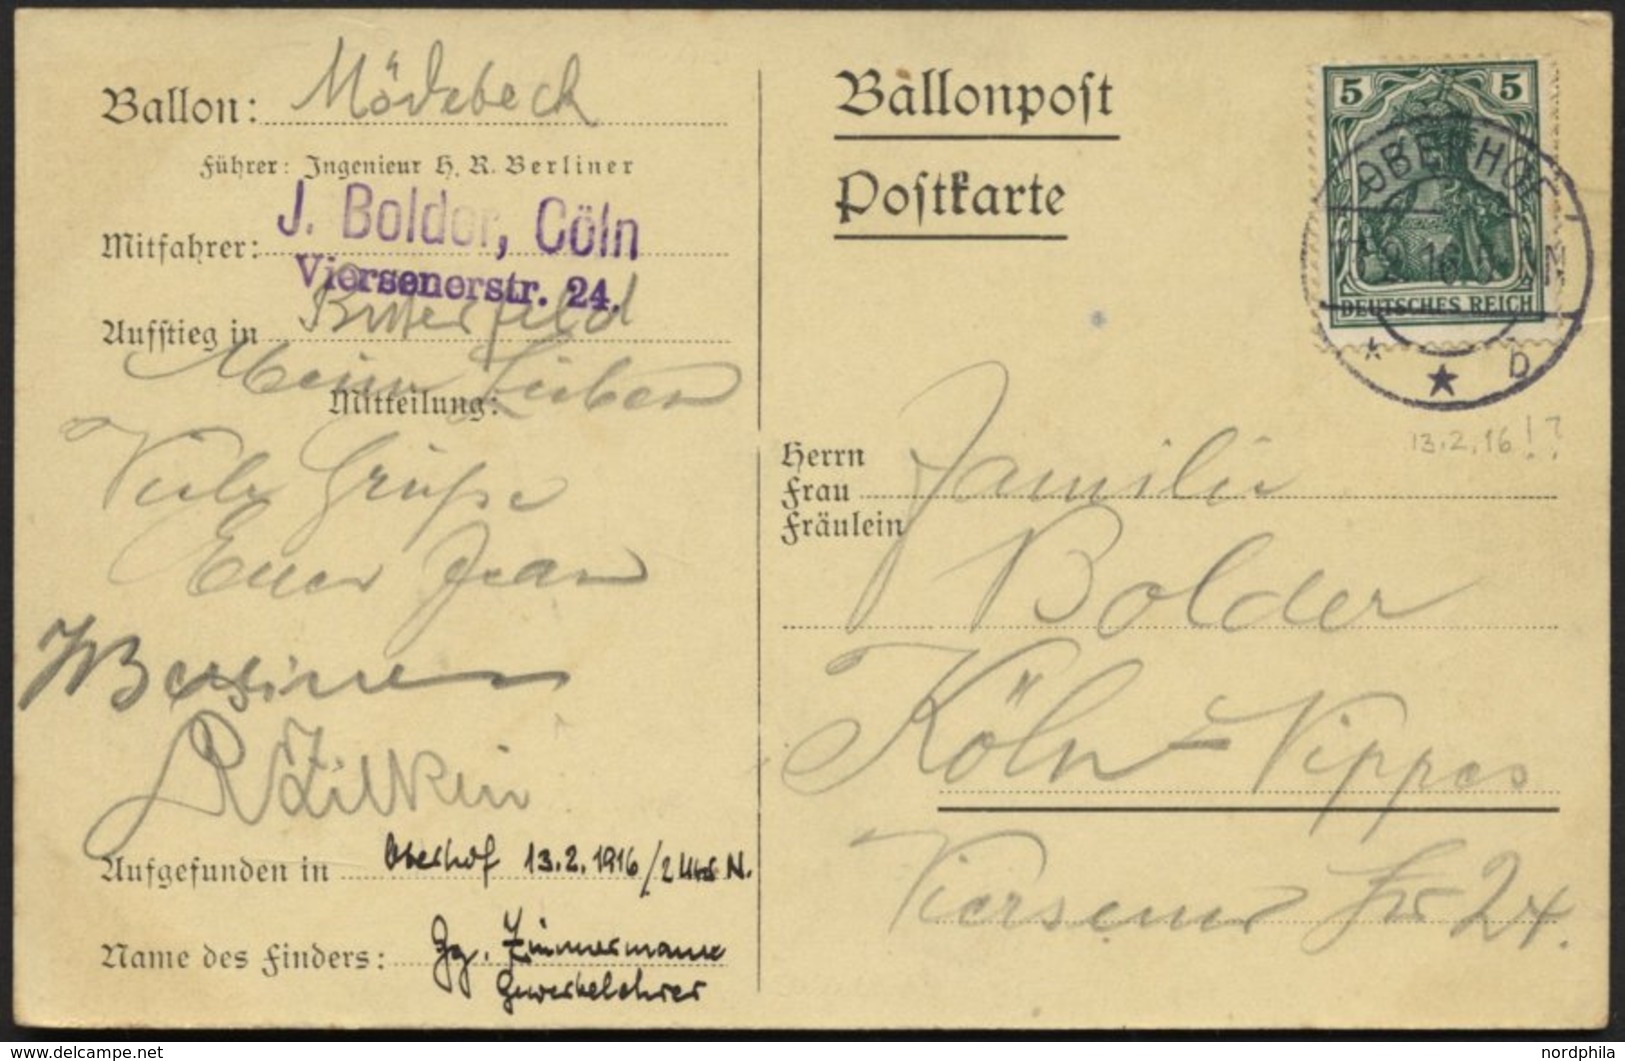 Ballon: Mödebeck
Führer: Ingenieur H. R. Berliner
Mitfahrer: J. Bolder, Cöln
Viersenerstr. 24.
Aufstieg in Bitterfeld
Meine Lieben
Mitteilung:
Viele Grüße
Euer Jean
Berliner
Aufgefunden in Oberhof 13.2.1916/2 Uhr N.
Name des Finders: Gg. Zimmermann
Gewerbelehrer
Ballonpost
Postkarte
5 5
DEUTSCHES REICH
OBERHOF
* ★ b
13.2.16!?
Herrn
Frau
Fräulein
Familie
Bolder
Köln-Nippes
Viersener Str 24.
www.delcampe.net
nordphila